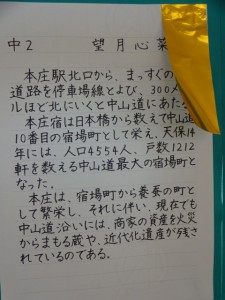 中2 望月心菜
本庄駅北口から、まっすぐの
道路を停車場線とよび、300メ
ルほど北にいくと中山道にあた
本庄宿は日本橋から数えて中山道
10番目の宿場町として栄え、天保14
年には、人口4554人、戸数1212
軒を数える中山道最大の宿場町と
なった。
本庄は、宿場町から養蚕の町と
して繁栄し、それに伴い、現在でも
中山道沿いには、商家の資産を火災
からまもる蔵や、近代化遺産が残さ
れているのである。